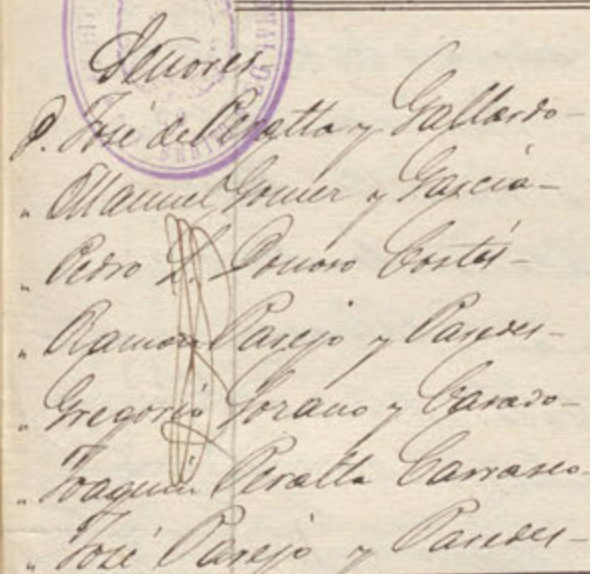 Señores
D. José de Peralta y Gallardo-
" Manuel Gomez y García-
" Pedro L. Donoso Cortés-
" Ramón Parejo y Paredes-
" Gregorio Lozano y Casado-
" Joaquin Peralta Carrasco-
" José Parejo y Paredes-